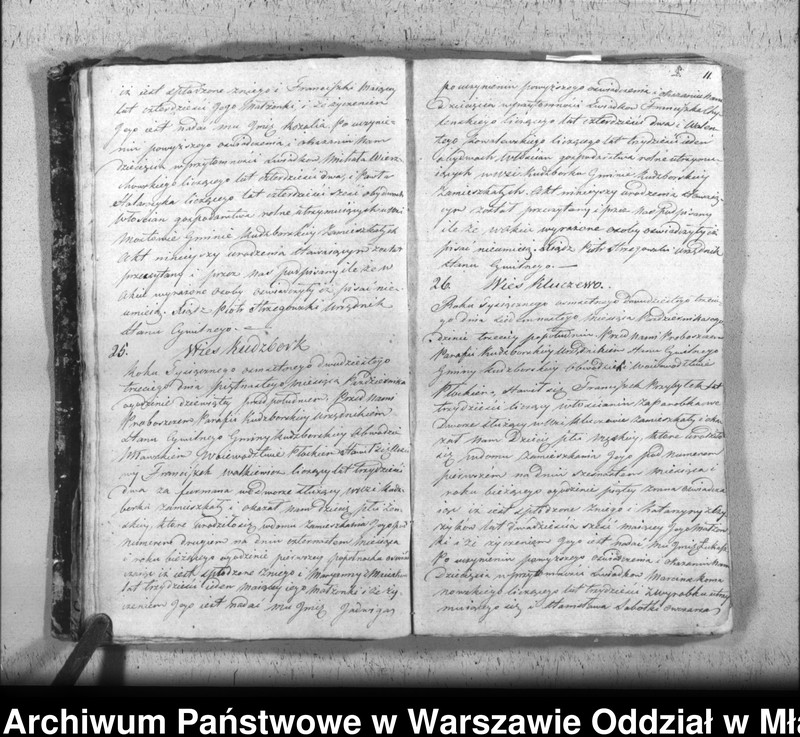 iż iest spłodzone z niego i Franciszki maiącey
lat czterdzieści Jego Małżonki i że życzeniem
Jego iest nadać mu Jmię Rozalia. Po uczynie-
niu powyższego oświadczenia i okazaniu Nam
dziecięcia w przytomności Świadków Michała
liczącego lat czterdzieści dwa, i Pawła
liczącego lat czterdzieści sześć obydwuch
Włościan gospodarstwa rolne utrzymuiących w wsi
Gminie Kudzborskiey Zamieszkałych
Akt ninieyszy urodzenia stawaiącym został
przeczytany i przez Nas podpisany ile że w
Akcie wyrażone osoby oświadczyły iż pisać nie-
umieią. Xiądz Piotr Urzędnik
Stanu Cywilnego.
25. Wieś Kudzbork
Roku Tysiącznego ośmsetnego dwudziestego
trzeciego dnia piętnastego Miesiąca Października
o godzinie dziewiątey przed południem. Przed Nami
Proboszczem Parafii Kudzborskiey Urzędnikiem
Stanu Cywilnego Gminy Kudzborskiey Obwodzie
Mławskim Woiewództwie Płockim Stawił się
Franciszek liczący lat trzydzieści
dwa za furmana we dworze służący w wsi Kudz-
borku zamieszkały i okazał nam dziecię płci żeń-
skiey, które urodziło się w domu zamieszkania Jego pod
numerem drugim na dniu czternastym Miesiąca
i roku bieżącego o godzinie pierwszey popołudniu oświad-
czaiąc iż iest spłodzone z niego i Maryanny z
lat trzydzieści ieden maiącey iego małżonki i że ży-
czeniem Jego iest nadać mu Jmię Jadwiga
5. 11
po uczynieniu powyższego oświadczenia i okazaniu Nam
Dziecięcia w przytomności Świadków Franciszka
liczącego lat czterdzieści dwa i Walen-
tego liczącego lat trzydzieści ieden
obydwuch Włościan gospodarstwa rolne utrzymu-
iących w wsi Kudzborku Gminie Kudzborskiey
Zamieszkałych. Akt ninieyszy urodzenia stawaią-
cym został przeczytany i przez Nas Podpisany
ile że w Akcie wyrażone osoby oświadczyły iż
pisać nieumieią. Xiądz Piotr Urzędnik
Stanu Cywilnego.
26. Wieś Kluczewo.
Roku tysiącznego ośmsetnego dwudziestego trzecie-
go dnia siedemnastego Miesiąca Października o go-
dzinie trzeciey popołudniu Przed Nami Proboszczem
Parafii Kudzborskiey Urzędnikiem Stanu Cywilnego
Gminy Kudzborskiey Obwodzie Woiewództwie
Płockim, stawił się Franciszek Przybyłek lat
trzydzieści liczący włościanin za parobka we
Dworze służący w wsi Kluczewie zamieszkały i oka-
zał Nam Dziecię płci męskiey, które urodziło
się w domu zamieszkania Jego pod numerem
pierwszem na dniu szesnastem miesiąca i
roku bieżącego o godzinie piątey zrana oświadcza-
iąc iż iest spłodzone z niego i Katarzyny z
lat dwadzieścia sześć maiącey Jego małżon-
ki i że życzeniem Jego iest nadać Mu Jmię Łukasz
Po uczynieniu powyższego oświadczenia i okazaniu Nam
Dziecięcia w przytomności Świadków Marcina
liczącego lat trzydzieści z wyrobku utrzy-
muiącego się i Stanisława Sobotki
Archiwum Państwowe w Warszawie Oddział w Mła